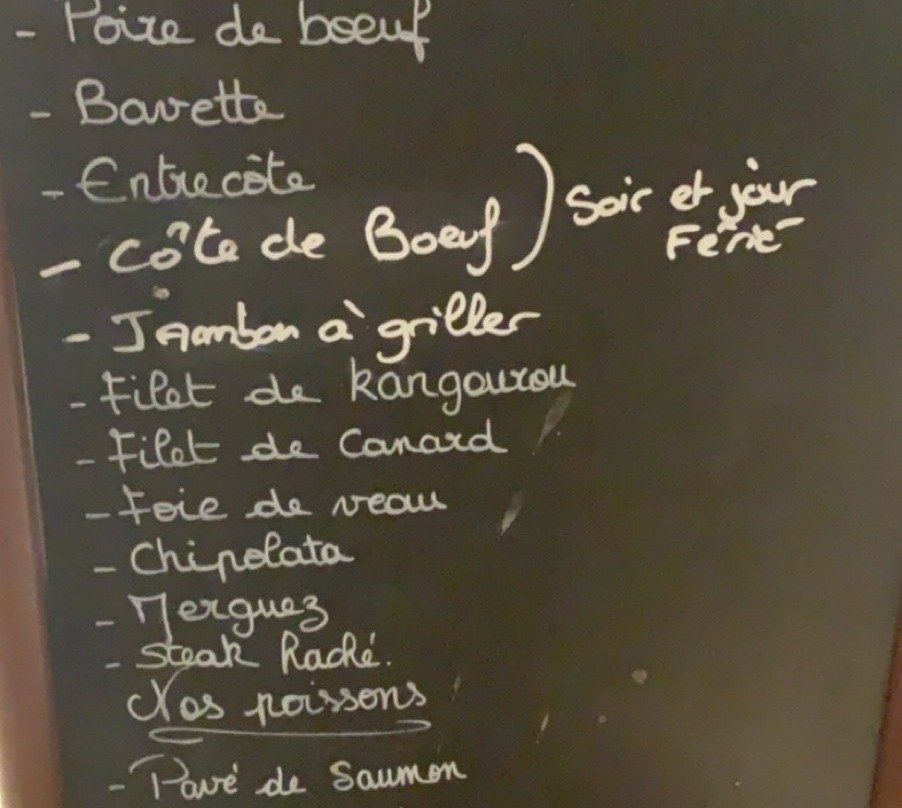 - Poire de boeuf
- Bavette
- Entrecôte
- Côte de Boeuf ) Soir et jour
Férié
- Jambon à griller
- Filet de kangourou
- Filet de Canard
- Foie de veau
- Chipolata
- Merguez
- Steak Haché.
Nos poissons
- Pavé de Saumon